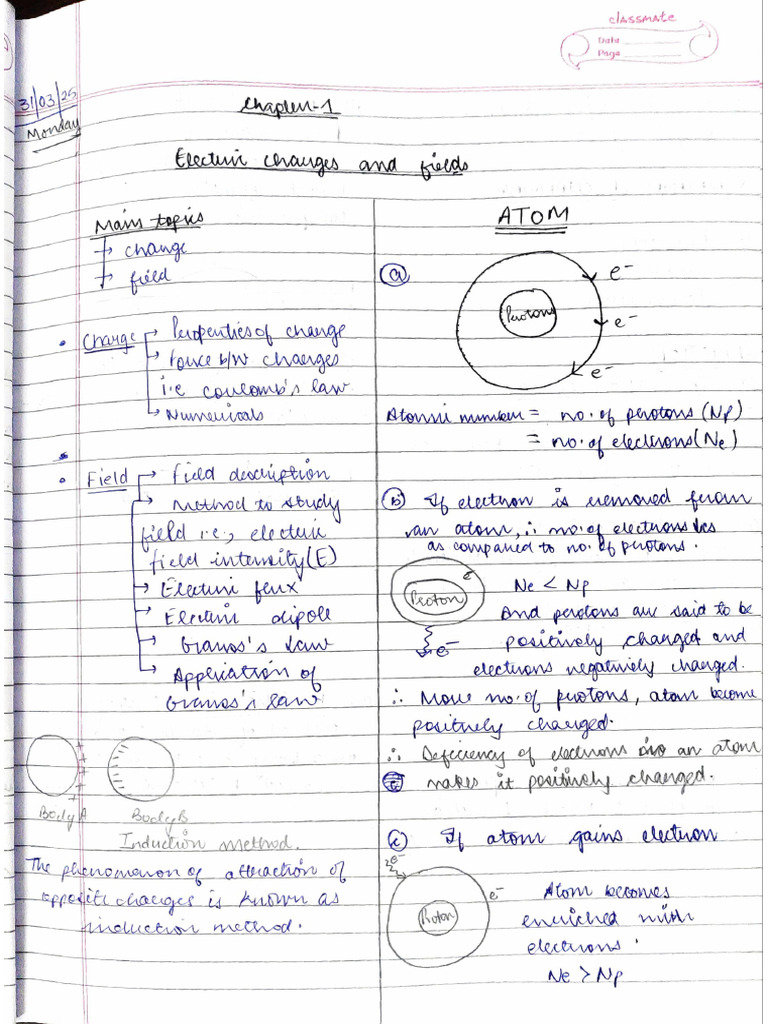 classmate
Date
Page
31/03/25
Monday
Chapter-1
Electric charges and fields
Main topics
→ charge
→ field
• Charge → Properties of charge
→ Force b/w charges
i.e coulomb's law
→ Numericals
• Field → Field description
→ Method to study
field i.e., electric
field intensity (E)
→ Electric flux
→ Electric dipole
→ Gauss's Law
→ Application of
Gauss's law
+
+
+
+
Body A
Body B
Induction method.
The phenomenon of attraction of
opposite charges is known as
induction method.
ATOM
(a)
Protons
e⁻
e⁻
e⁻
Atomic number = no. of protons (Np)
= no. of electrons (Ne)
(b) If electron is removed from
an atom, ∴ no. of electrons les
as compared to no. of protons.
Proton
e⁻
e⁻
Ne < Np
And protons are said to be
positively charged and
electrons negatively charged.
∴ More no. of protons, atom become
positively charged.
∴ Deficiency of electrons in an atom
makes it positively charged.
(c) If atom gains electron
e⁻
Proton
e⁻
Atom becomes
enriched with
electrons.
Ne > Np